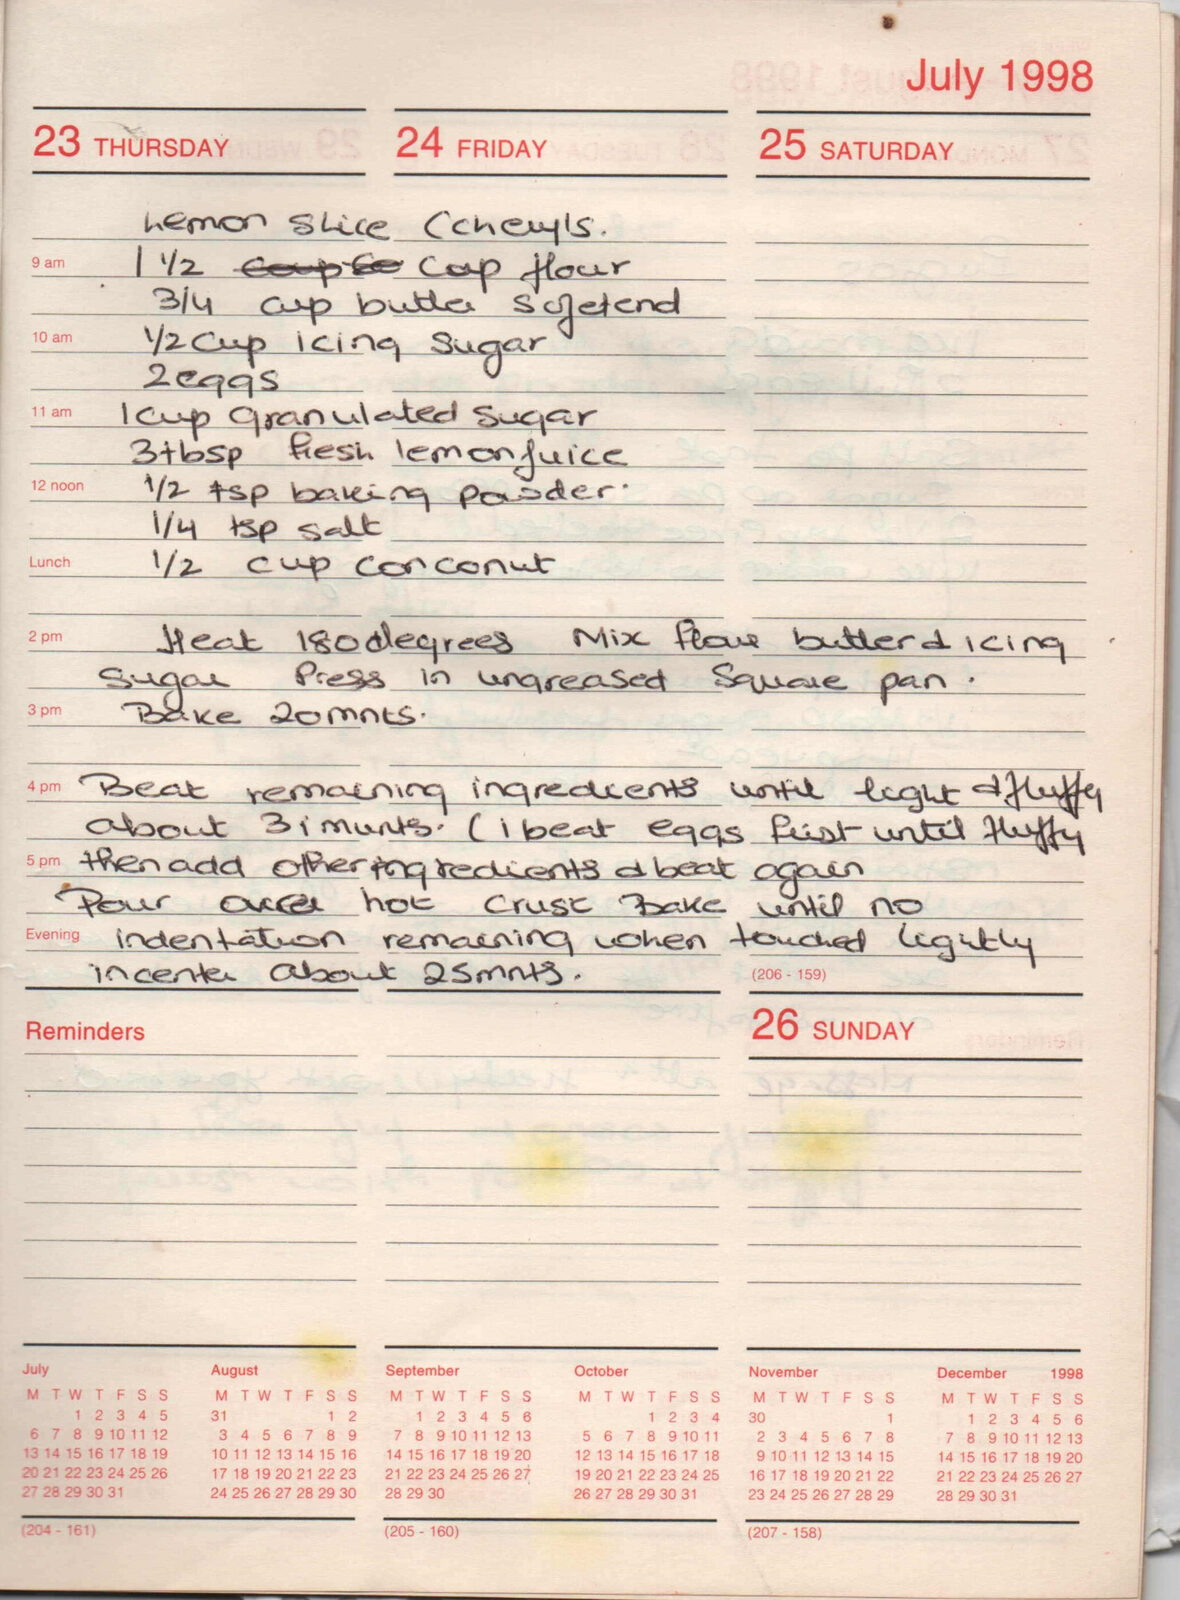 July 1998
23 THURSDAY
24 FRIDAY
25 SATURDAY
Lemon Slice (Cheryls.
9 am
1 1/2 Cup flour
3/4 cup butter softend
10 am
1/2 Cup icing Sugar
2 eggs
11 am
1 cup granulated Sugar
3 tbsp fresh lemon juice
12 noon
1/2 tsp baking powder.
1/4 tsp salt
Lunch
1/2 cup conconut
2 pm
Heat 180 degrees Mix flour butter & icing
Sugar Press in ungreased Square pan.
3 pm
Bake 20 mnts.
4 pm
Beat remaining ingredients until light & fluffy
about 3 munts. (i beat eggs first until fluffy
5 pm
then add other ingredients & beat again
Pour over hot crust Bake until no
Evening
indentation remaining when touched lightly
in center about 25 mnts.
(206 - 159)
Reminders
26 SUNDAY
July
M T W T F S S
1 2 3 4 5
6 7 8 9 10 11 12
13 14 15 16 17 18 19
20 21 22 23 24 25 26
27 28 29 30 31
August
M T W T F S S
31 1 2
3 4 5 6 7 8 9
10 11 12 13 14 15 16
17 18 19 20 21 22 23
24 25 26 27 28 29 30
September
M T W T F S S
1 2 3 4 5 6
7 8 9 10 11 12 13
14 15 16 17 18 19 20
21 22 23 24 25 26 27
28 29 30
October
M T W T F S S
1 2 3 4
5 6 7 8 9 10 11
12 13 14 15 16 17 18
19 20 21 22 23 24 25
26 27 28 29 30 31
November
M T W T F S S
30 1
2 3 4 5 6 7 8
9 10 11 12 13 14 15
16 17 18 19 20 21 22
23 24 25 26 27 28 29
December 1998
M T W T F S S
1 2 3 4 5 6
7 8 9 10 11 12 13
14 15 16 17 18 19 20
21 22 23 24 25 26 27
28 29 30 31
(204 - 161)
(205 - 160)
(207 - 158)